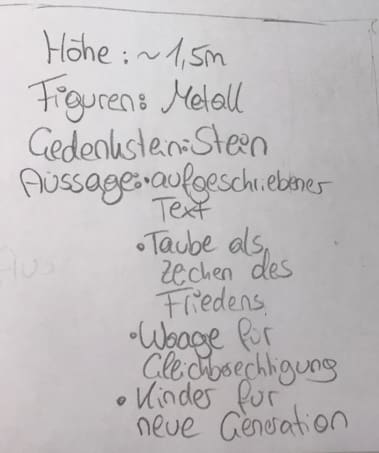 Höhe: ~ 1,5m
Figuren: Metall
Gedenkstein: Stein
Aussage: • aufgeschriebener
Text
• Taube als
Zechen des
Friedens
• Waage für
Gleichberechtigung
• Kinder für
neue Generation